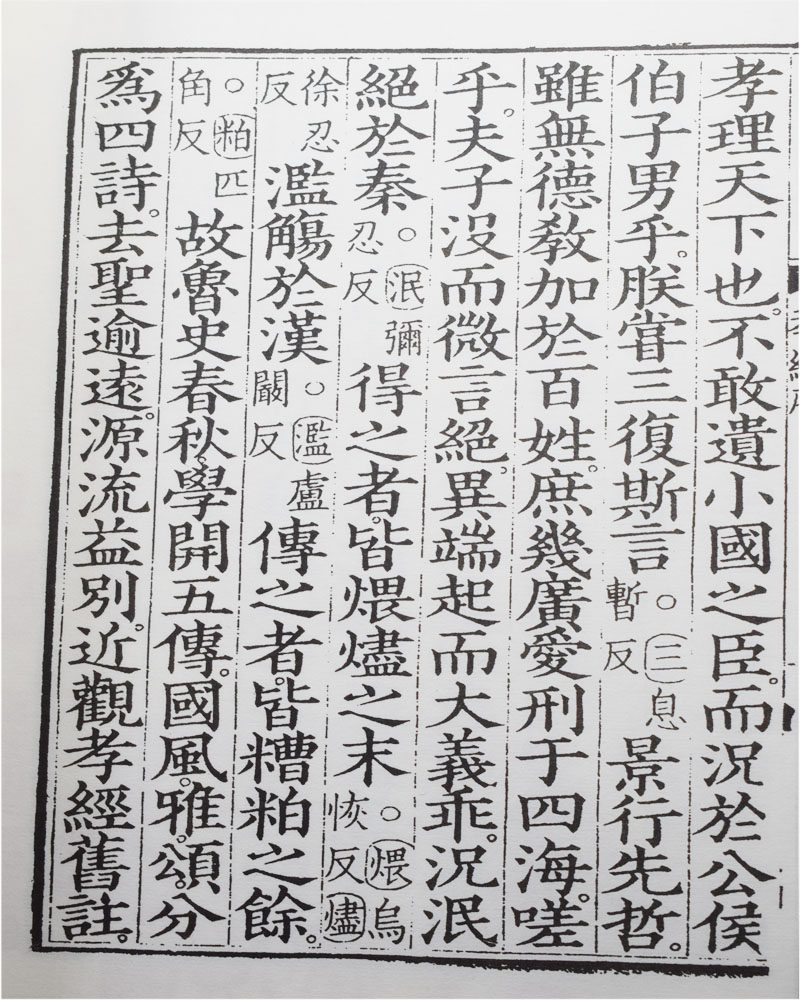 孝理天下也。不敢遺小國之臣。而況於公侯
伯子男乎。朕嘗三復斯言○三息暫反景行先哲。
雖無德教加於百姓。庶幾廣愛刑于四海。嗟
乎。夫子沒而微言絕。異端起而大義乖。況泯
絕於秦。○泯彌忍反得之者。皆煨燼之末○煨烏恢反燼
徐忍反濫觴於漢○濫盧闞反傳之者。皆糟粕之餘。
○粕匹角反故魯史春秋。學開五傳。國風。雅。頌。分
爲四詩。去聖逾遠。源流益別。近觀孝經舊註。